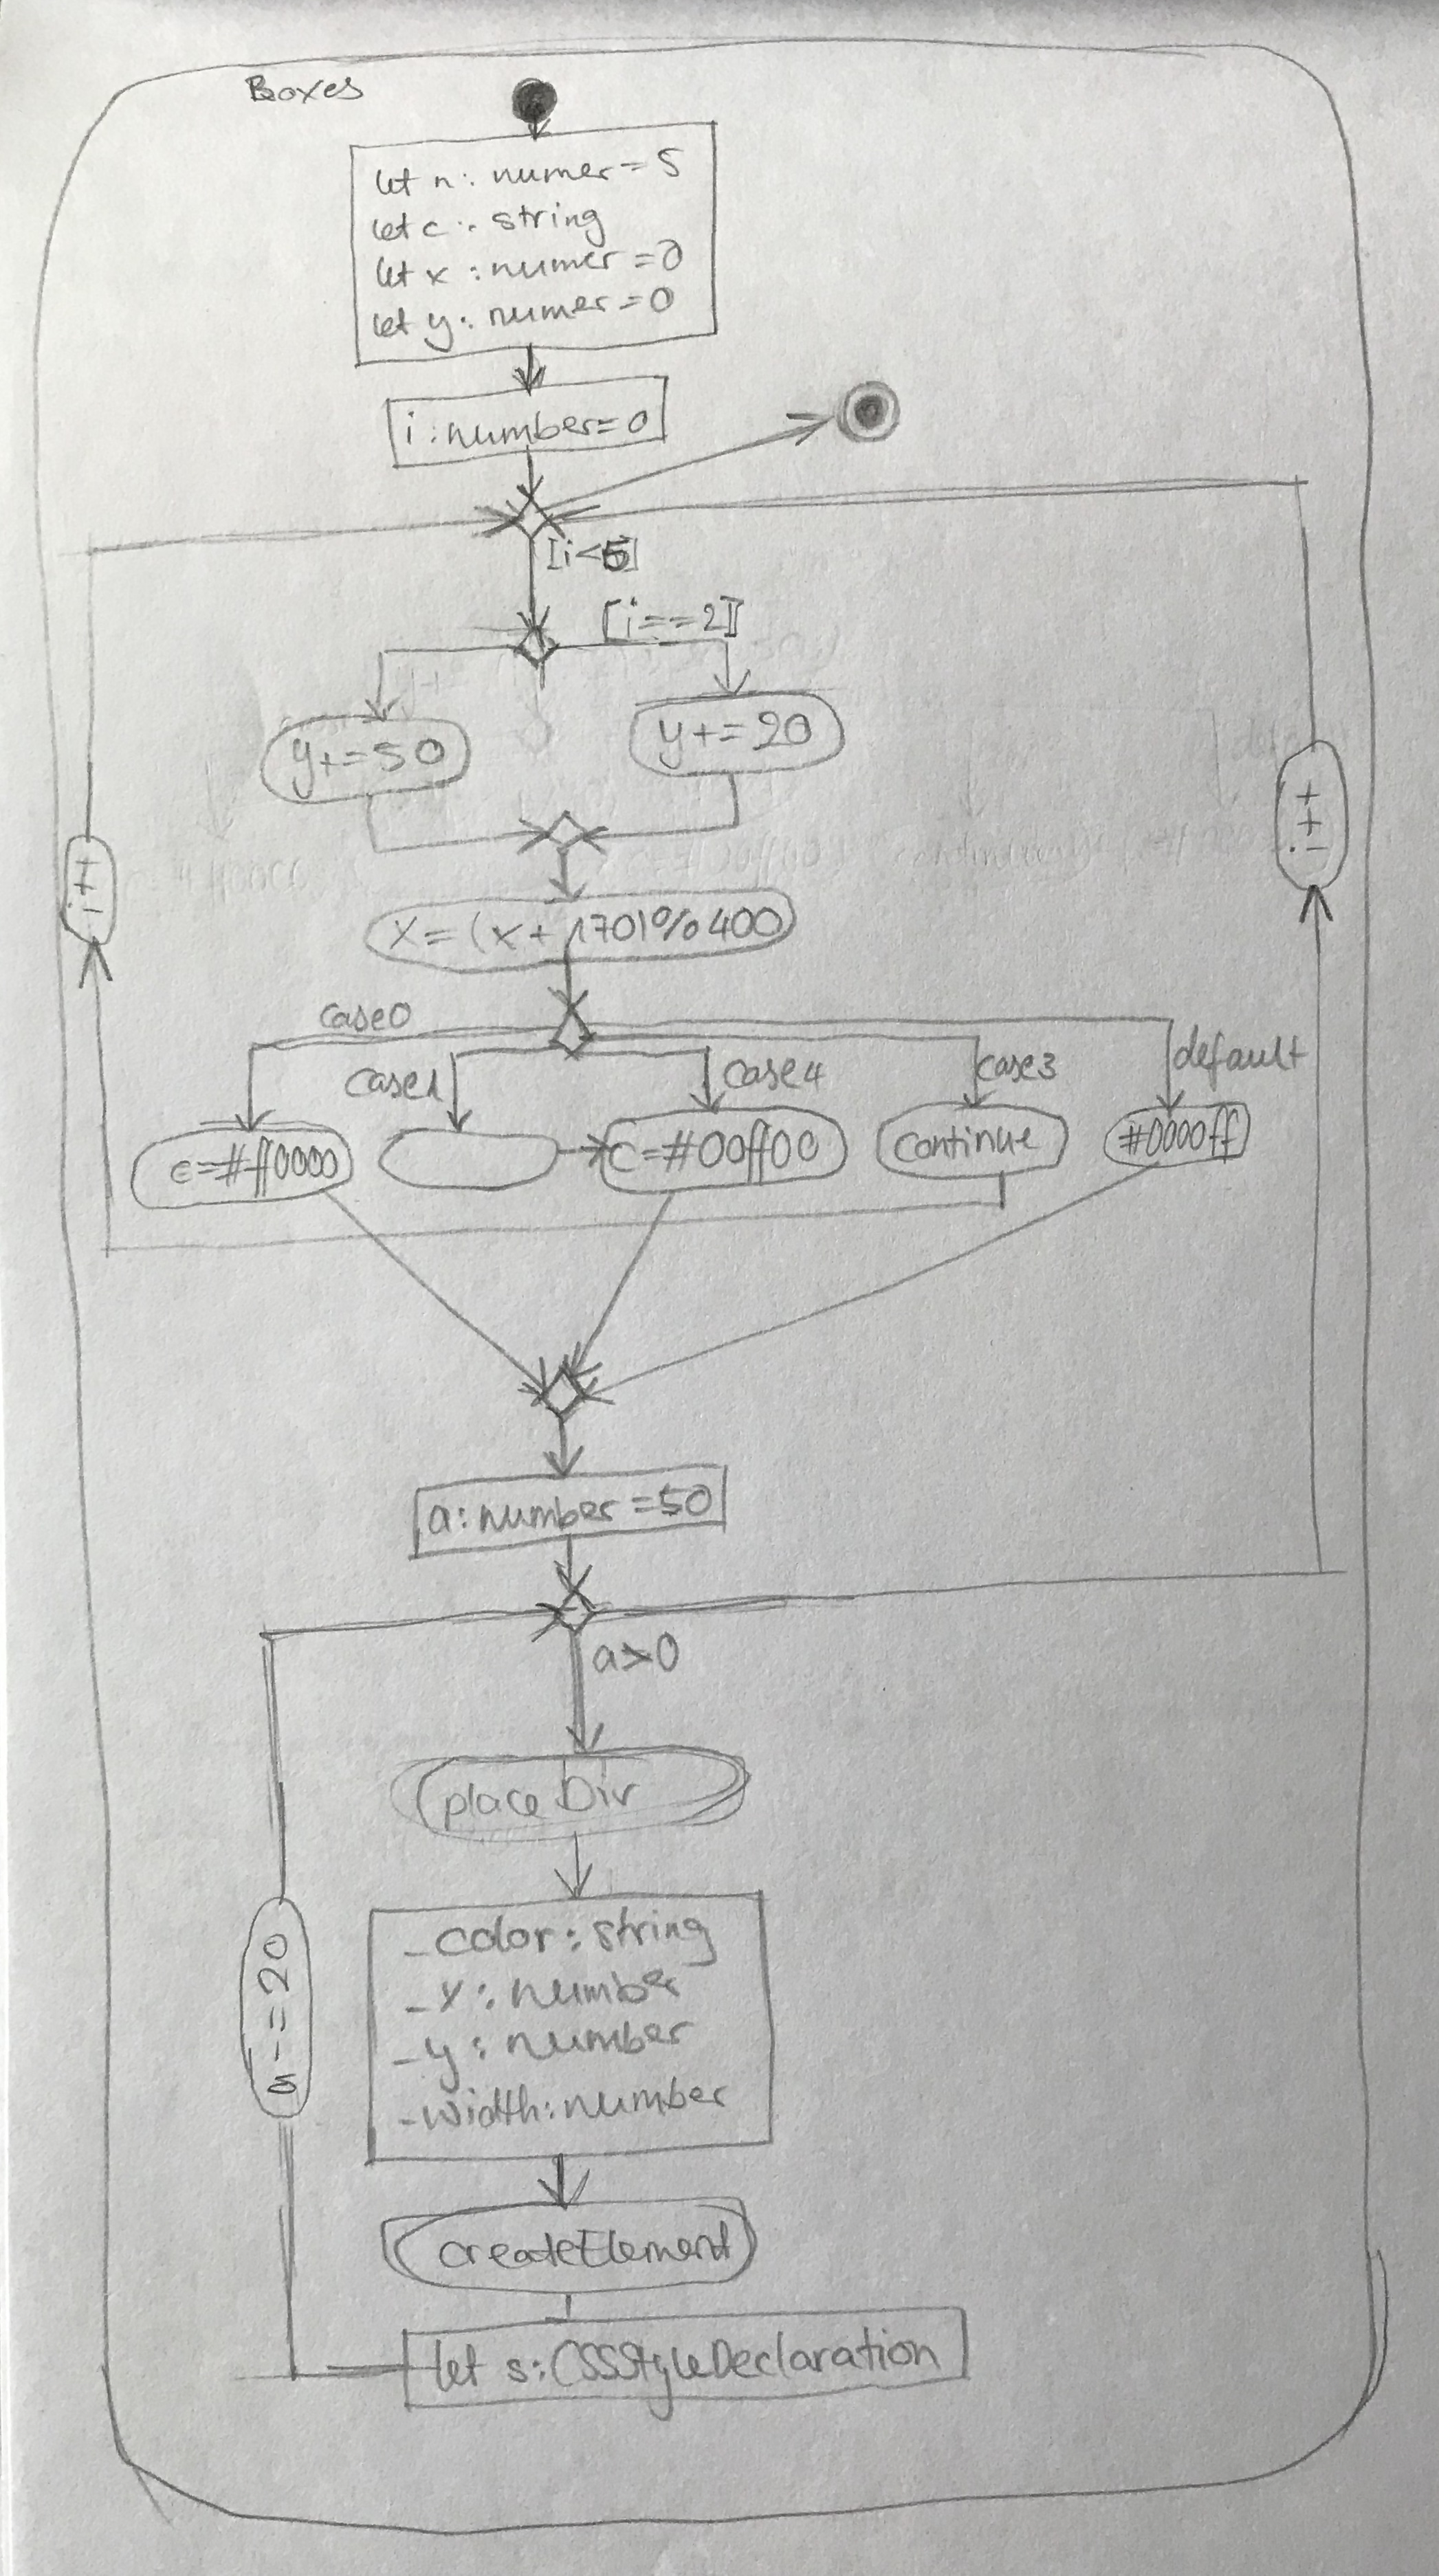 Boxes
let n: numer=5
let c: string
let x: numer=0
let y: numer=0
i:number=0
[i<5]
[i==2]
y+=50
y+=20
i++
i++
x=(x+170)%400
case0
case1
case4
case3
default
c=#ff0000
c=#00ff00
continue
#0000ff
a:number=50
a>0
placeDiv
a-=20
_color:string
_x:number
_y:number
_width:number
createElement
let s:CSSStyleDeclaration